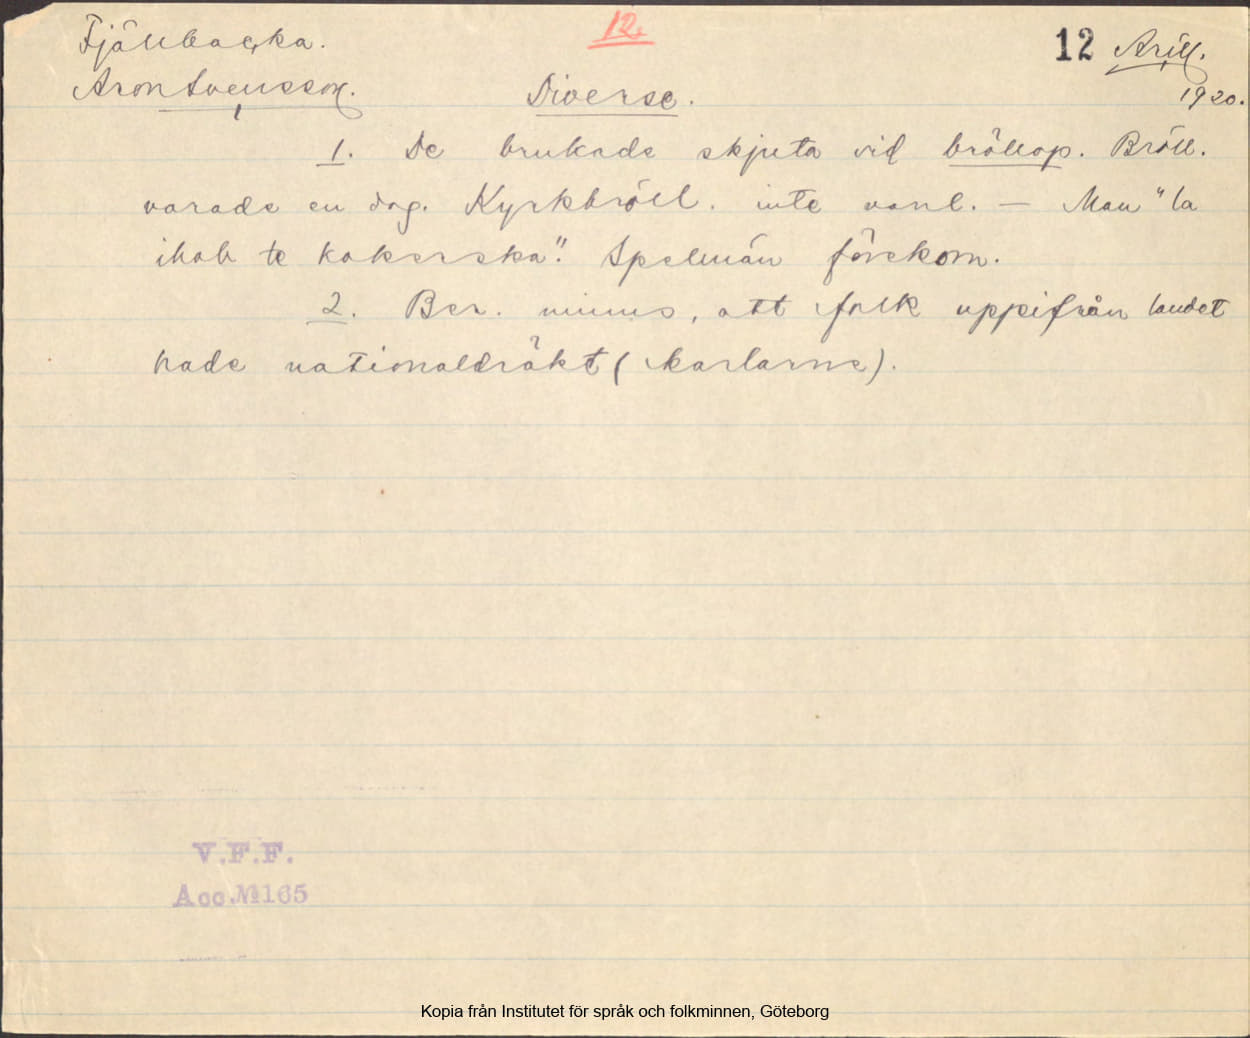 Fjällbacka.
12.
12 Arill.
Aron Svensson.
Diverse.
1920.
1. De brukade skjuta vid bröllop. Bröll.
varade en dag. Kyrkbröll. inte vanl. — Man "la
ihob te kokerska". Spelmän förekom.
2. Ber. minns, att folk uppifrån landet
hade nationaldräkt (karlarne).
V.F.F.
Acc. № 165
Kopia från Institutet för språk och folkminnen, Göteborg